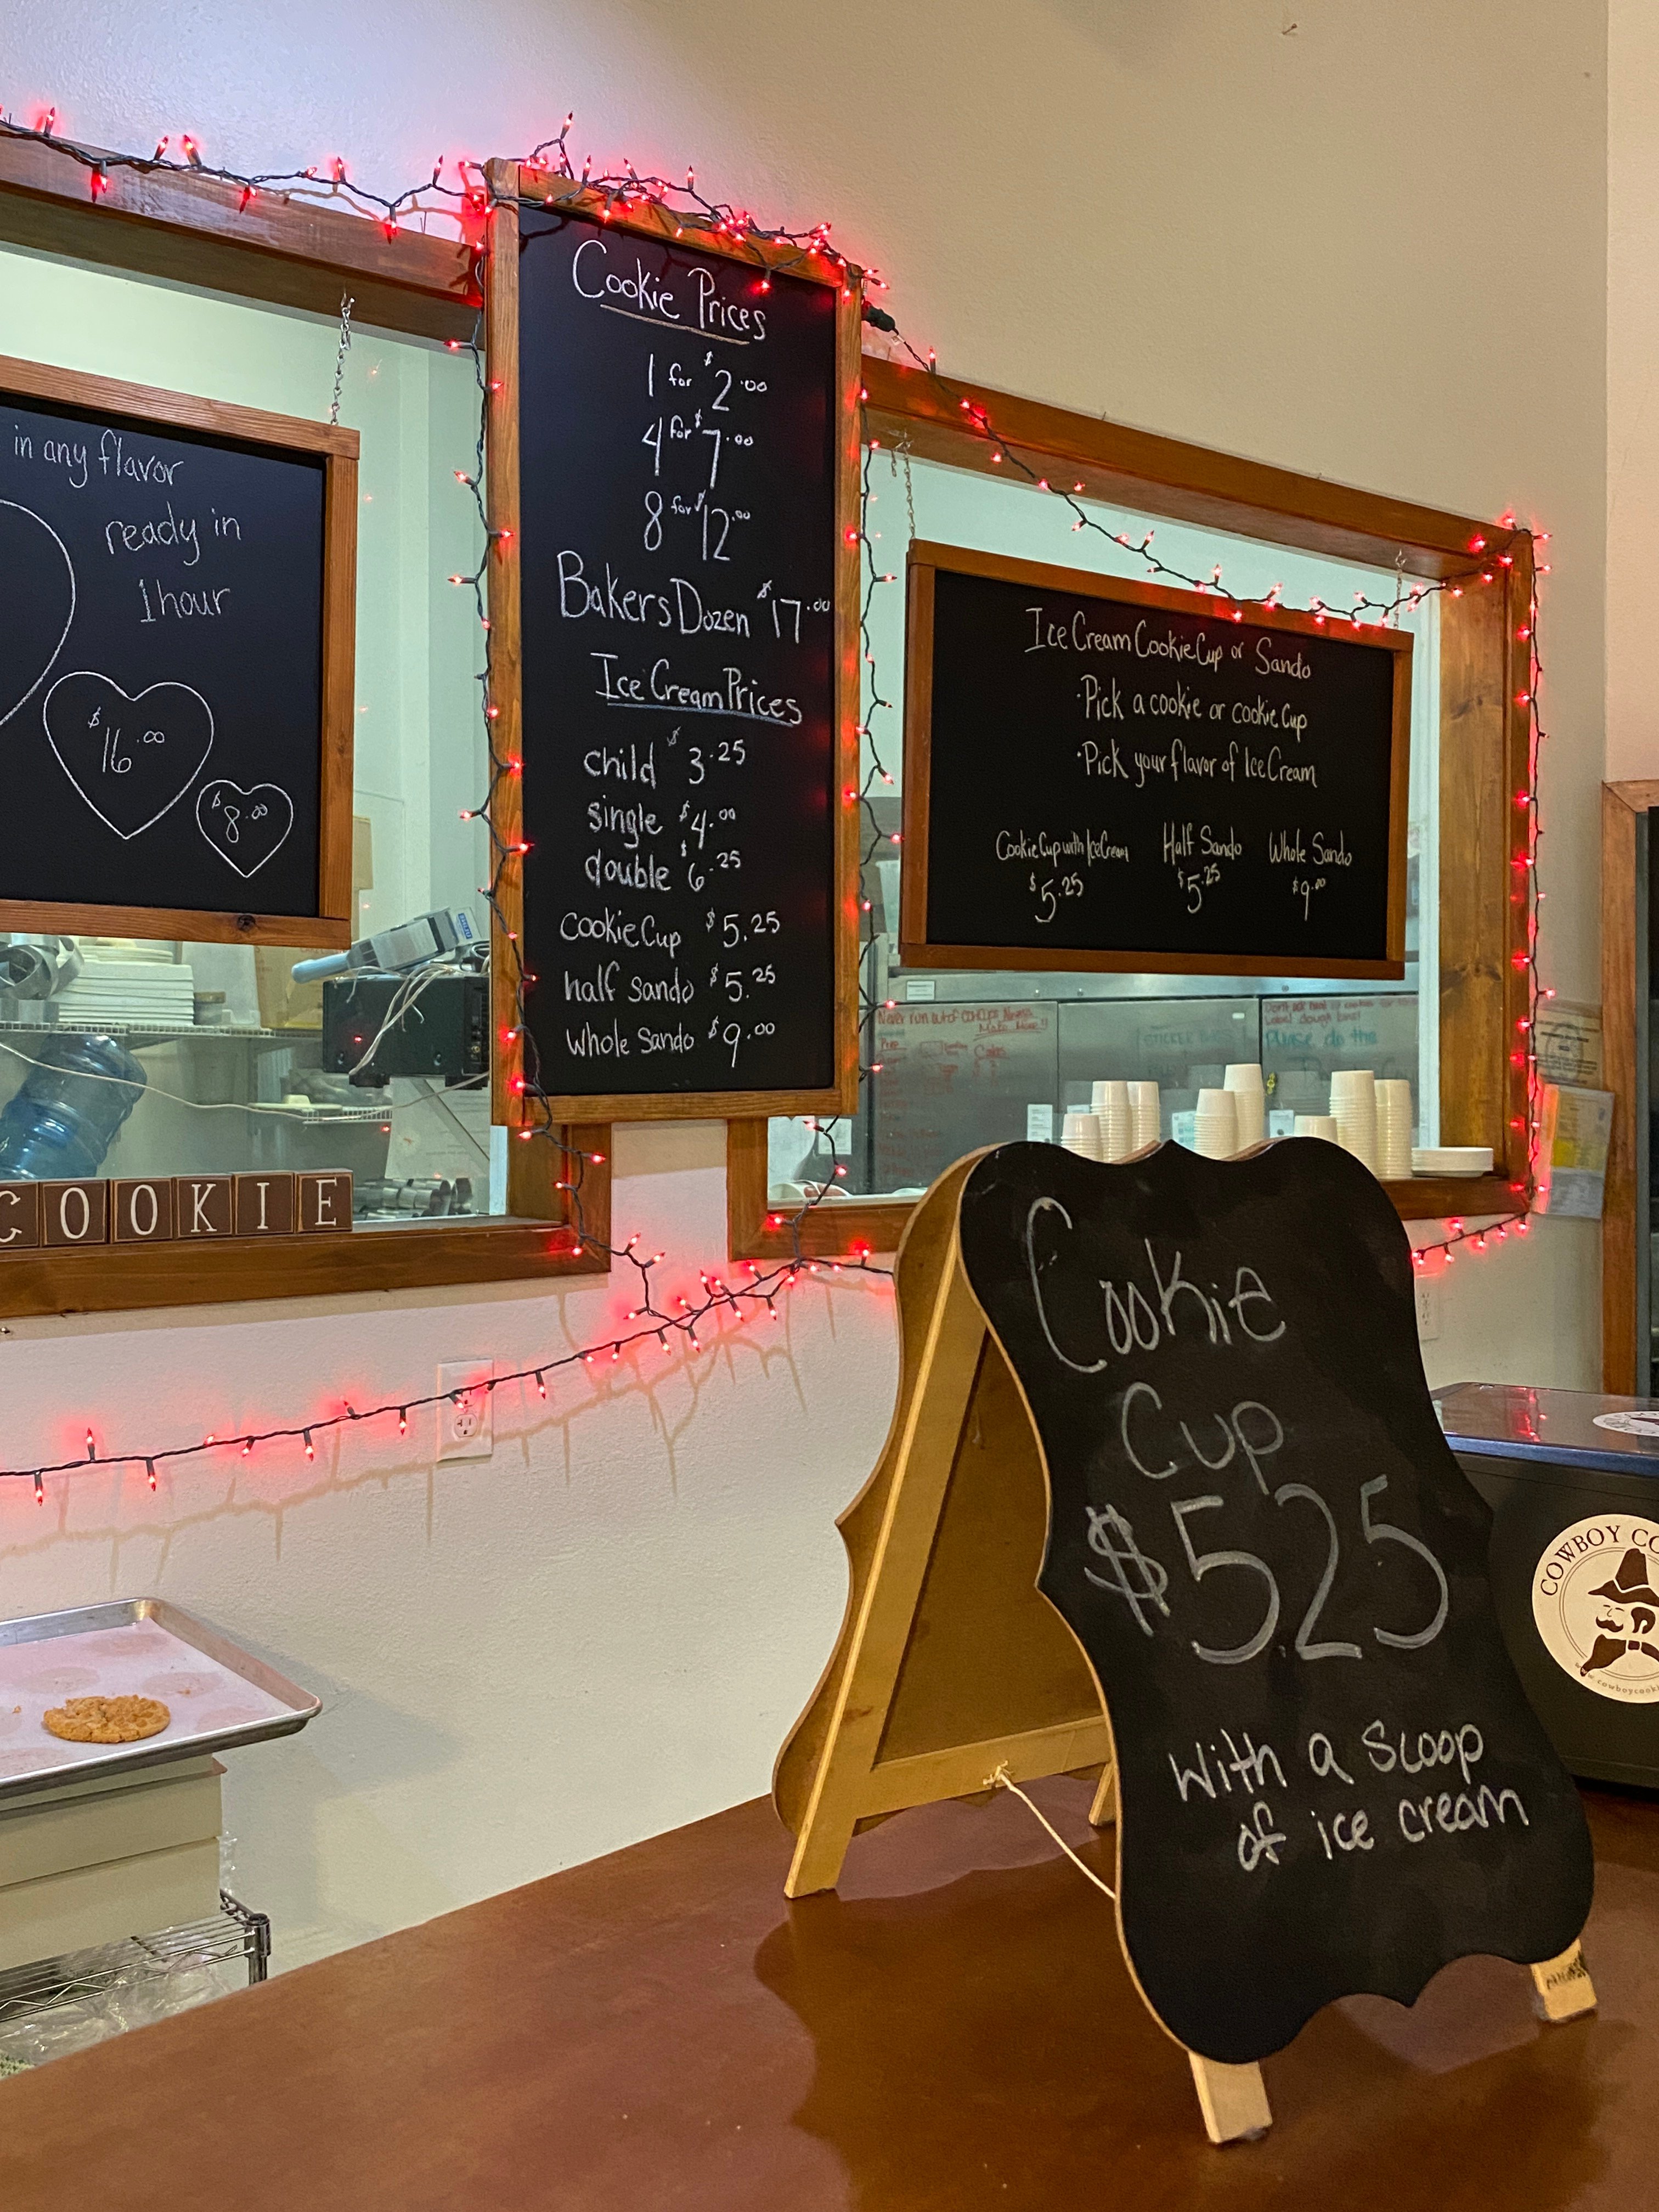 in any flavor
ready in
1 hour
$16.00
$8.00
COOKIE
Cookie Prices
1 for $2.00
4 for $7.00
8 for $12.00
Bakers Dozen $17.00
Ice Cream Prices
child $3.25
single $4.00
double $6.25
cookie Cup $5.25
half sando $5.25
Whole Sando $9.00
Ice Cream Cookie Cup or Sando
·Pick a cookie or cookie Cup
·Pick your flavor of Ice Cream
Cookie Cup with Ice Cream Half Sando Whole Sando
$5.25 $5.25 $9.00
Never run out of
Please do the
Cookie
Cup
$5.25
With a Scoop
of ice cream
COWBOY CO